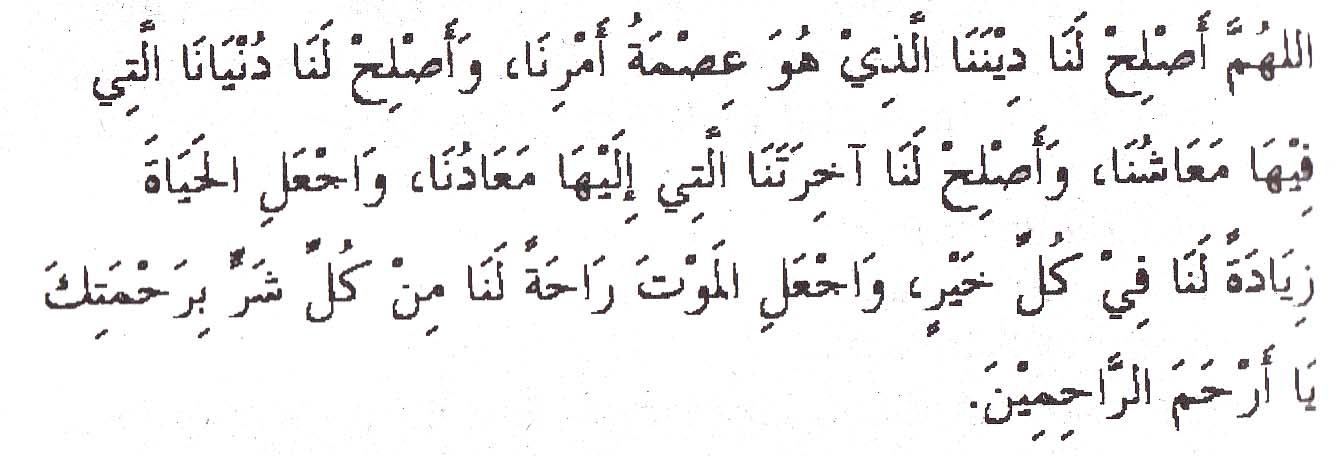 اللهُمَّ أَصْلِحْ لَنَا دِيْنَنَا الَّذِيْ هُوَ عِصْمَةُ أَمْرِنَا، وَأَصْلِحْ لَنَا دُنْيَانَا الَّتِي
فِيْهَا مَعَاشُنَا، وَأَصْلِحْ لَنَا آخِرَتَنَا الَّتِي إِلَيْهَا مَعَادُنَا، وَاجْعَلِ الحَيَاةَ
زِيَادَةً لَنَا فِيْ كُلِّ خَيْرٍ، وَاجْعَلِ المَوْتَ رَاحَةً لَنَا مِنْ كُلِّ شَرٍّ بِرَحْمَتِكَ
يَا أَرْحَمَ الرَّاحِمِيْنَ.